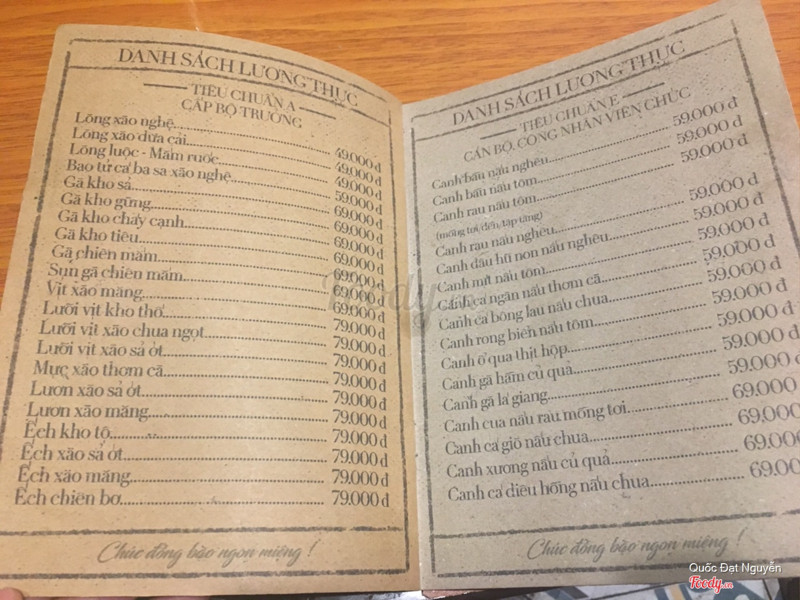 DANH SÁCH LƯƠNG THỰC
TIÊU CHUẨN A
CẤP BỘ TRƯỞNG
Lòng xào nghệ 49.000 đ
Lòng xào dưa cải 49.000 đ
Lòng luộc - Mắm ruốc 49.000 đ
Bao tử cá ba sa xào nghệ 59.000 đ
Gà kho sả 69.000 đ
Gà kho gừng 69.000 đ
Gà kho cháy cạnh 69.000 đ
Gà kho tiêu 69.000 đ
Gà chiên mắm 69.000 đ
Sụn gà chiên mắm 69.000 đ
Vịt xào măng 69.000 đ
Lưỡi vịt kho thơ 79.000 đ
Lưỡi vịt xào chua ngọt 79.000 đ
Lưỡi vịt xào sả ớt 79.000 đ
Mực xào thơm cà 79.000 đ
Lươn xào sả ớt 79.000 đ
Lươn xào măng 79.000 đ
Ếch kho tộ 79.000 đ
Ếch xào sả ớt 79.000 đ
Ếch xào măng 79.000 đ
Ếch chiên bơ 79.000 đ
Chúc đồng bào ngon miệng !
DANH SÁCH LƯƠNG THỰC
TIÊU CHUẨN E
CÁN BỘ, CÔNG NHÂN VIÊN CHỨC
Canh bầu nấu nghêu 59.000 đ
Canh bầu nấu tôm 59.000 đ
Canh rau nấu tôm 59.000 đ
(mồng tơi, dền, tập tàng)
Canh rau nấu nghêu 59.000 đ
Canh đậu hũ non nấu nghêu 59.000 đ
Canh mít nấu tôm 59.000 đ
Canh cá ngân nấu thơm cà 59.000 đ
Canh cá bông lau nấu chua 59.000 đ
Canh rong biển nấu tôm 59.000 đ
Canh ổ qua thịt hộp 59.000 đ
Canh gà hầm củ quả 59.000 đ
Canh gà lá giang 69.000 đ
Canh cua nấu rau mồng tơi 69.000
Canh cá giò nấu chua 69.000
Canh xương nấu củ quả 69.000
Canh cá diêu hồng nấu chua 69.00
Chúc đồng bào ngon miệng !
Foody
Quốc Đạt Nguyễn
Foody.vn